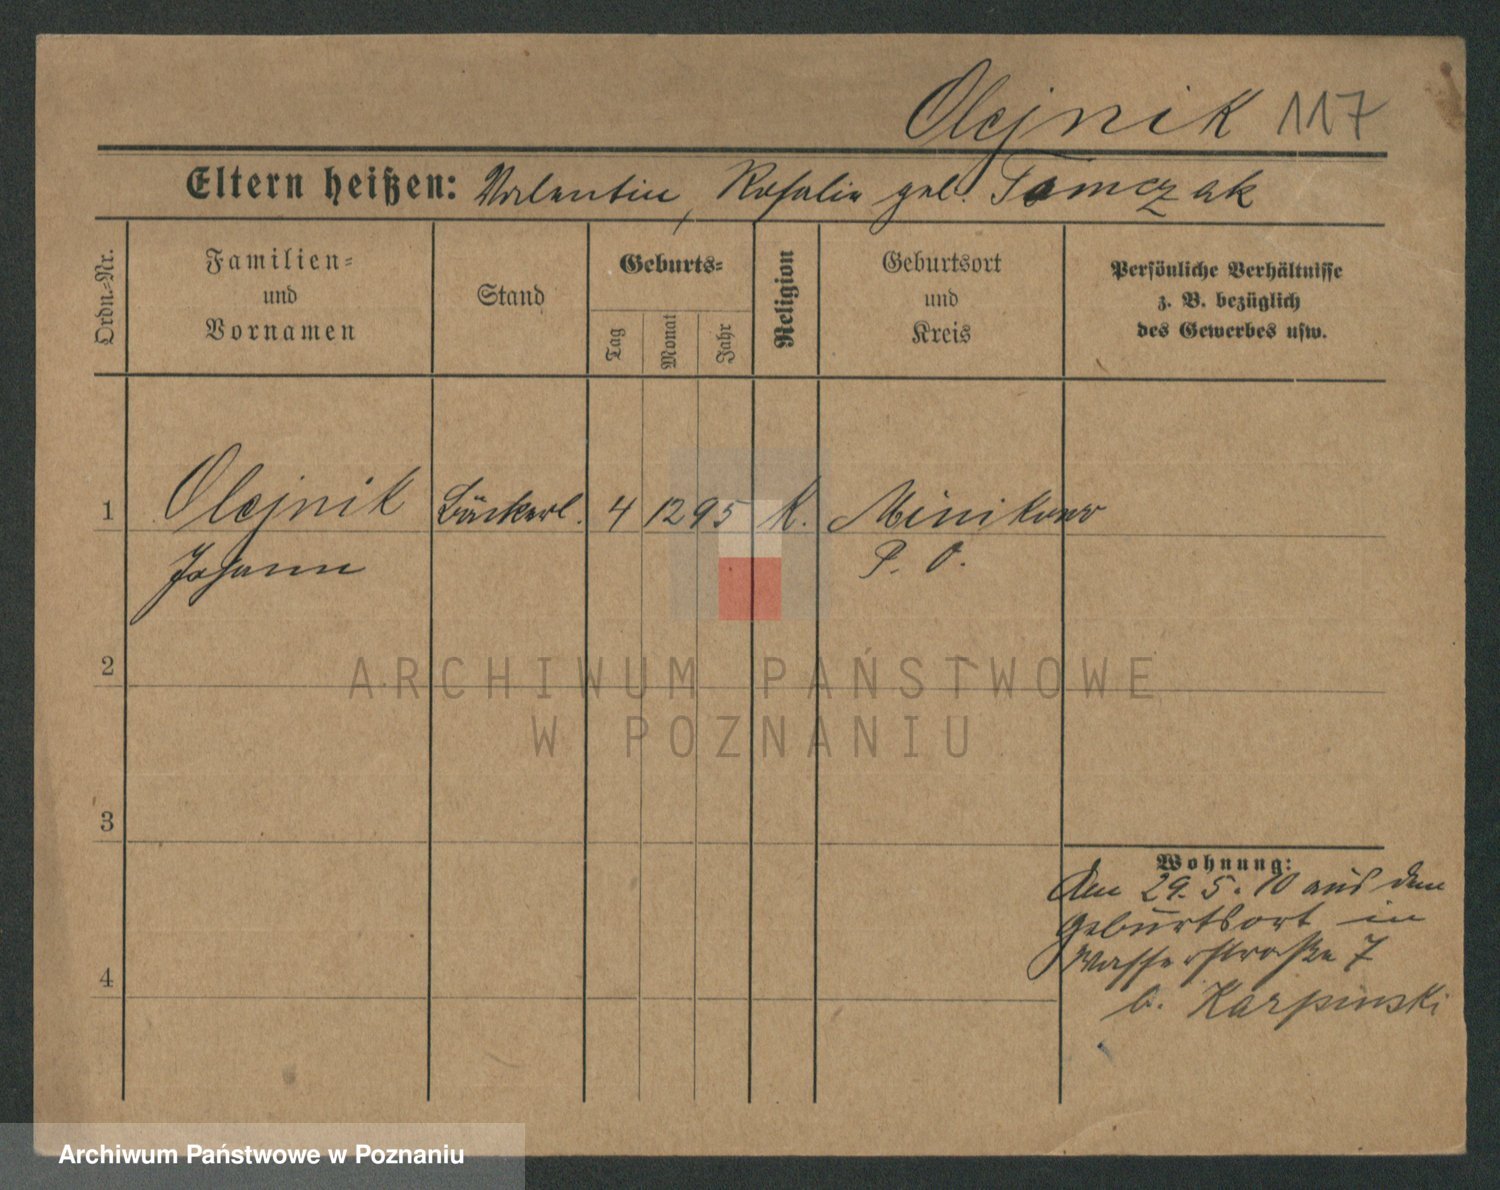 Olejnik 117
Eltern heißen: Valentin, Rosalie geb. Tomczak
Ordn.-Nr.
Familien-
und
Vornamen
Stand
Geburts-
Tag
Monat
Jahr
Religion
Geburtsort
und
Kreis
Persönliche Verhältnisse
z. B. bezüglich
des Gewerbes usw.
1 Olejnik Bäckerl. 4 12 95 K. Minikowo
Johann P. O.
2
ARCHIWUM PAŃSTWOWE
W POZNANIU
3
Wohnung:
Den 29.5.10 aus dem
Geburtsort in
Wasserstraße 7
b. Karpinski
4
Archiwum Państwowe w Poznaniu